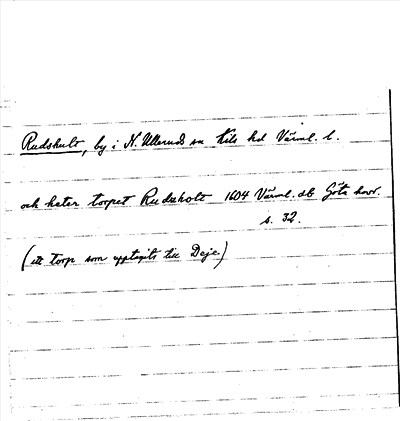 Rudshult, by i N. Ulleruds sn Kils hd Värml. l.
och heter torpet Rudzholt 1604 Värml. db Göta hovr.
s. 32.
(ett torp som upptagits till Deje)